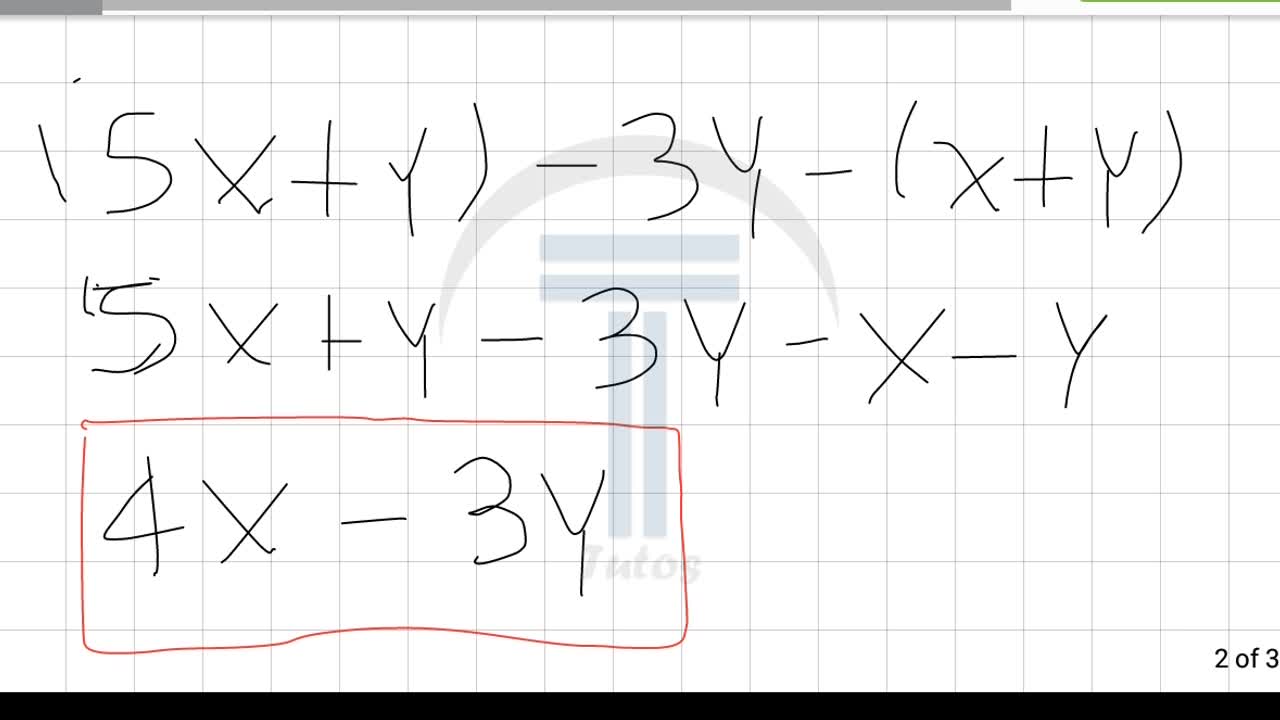 (5x+y)-3y-(x+y)
5x+y-3y-x-y
4x-3y
Tutos
2 of 3